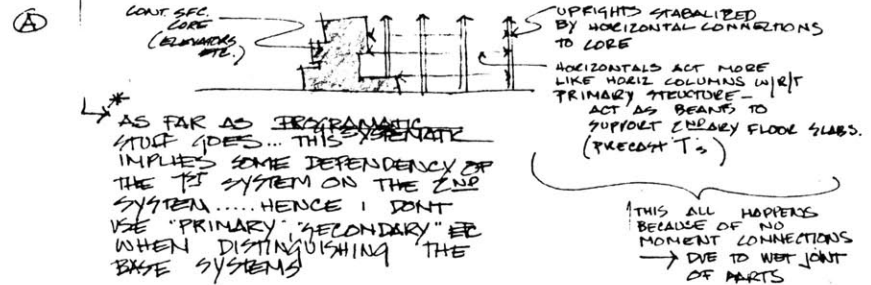 A
CONT. SFC.
CORE
(ELEVATORS
ETC.)
UPRIGHTS STABALIZED
BY HORIZONTAL CONNECTIONS
TO CORE
HORIZONTALS ACT MORE
LIKE HORIZ COLUMNS W/R/T
PRIMARY STRUCTURE—
ACT AS BEAMS TO
SUPPORT 2NDARY FLOOR SLABS.
(PRECAST 'T's)
AS FAR AS PROGRAMATIC
STUFF GOES... THIS
IMPLIES SOME DEPENDENCY OF
THE 1ST SYSTEM ON THE 2ND
SYSTEM..... HENCE I DONT
USE "PRIMARY", "SECONDARY" ETC
WHEN DISTINGUISHING THE
BASE SYSTEMS
THIS ALL HAPPENS
BECAUSE OF NO
MOMENT CONNECTIONS
→ DUE TO WET JOINT
OF PARTS